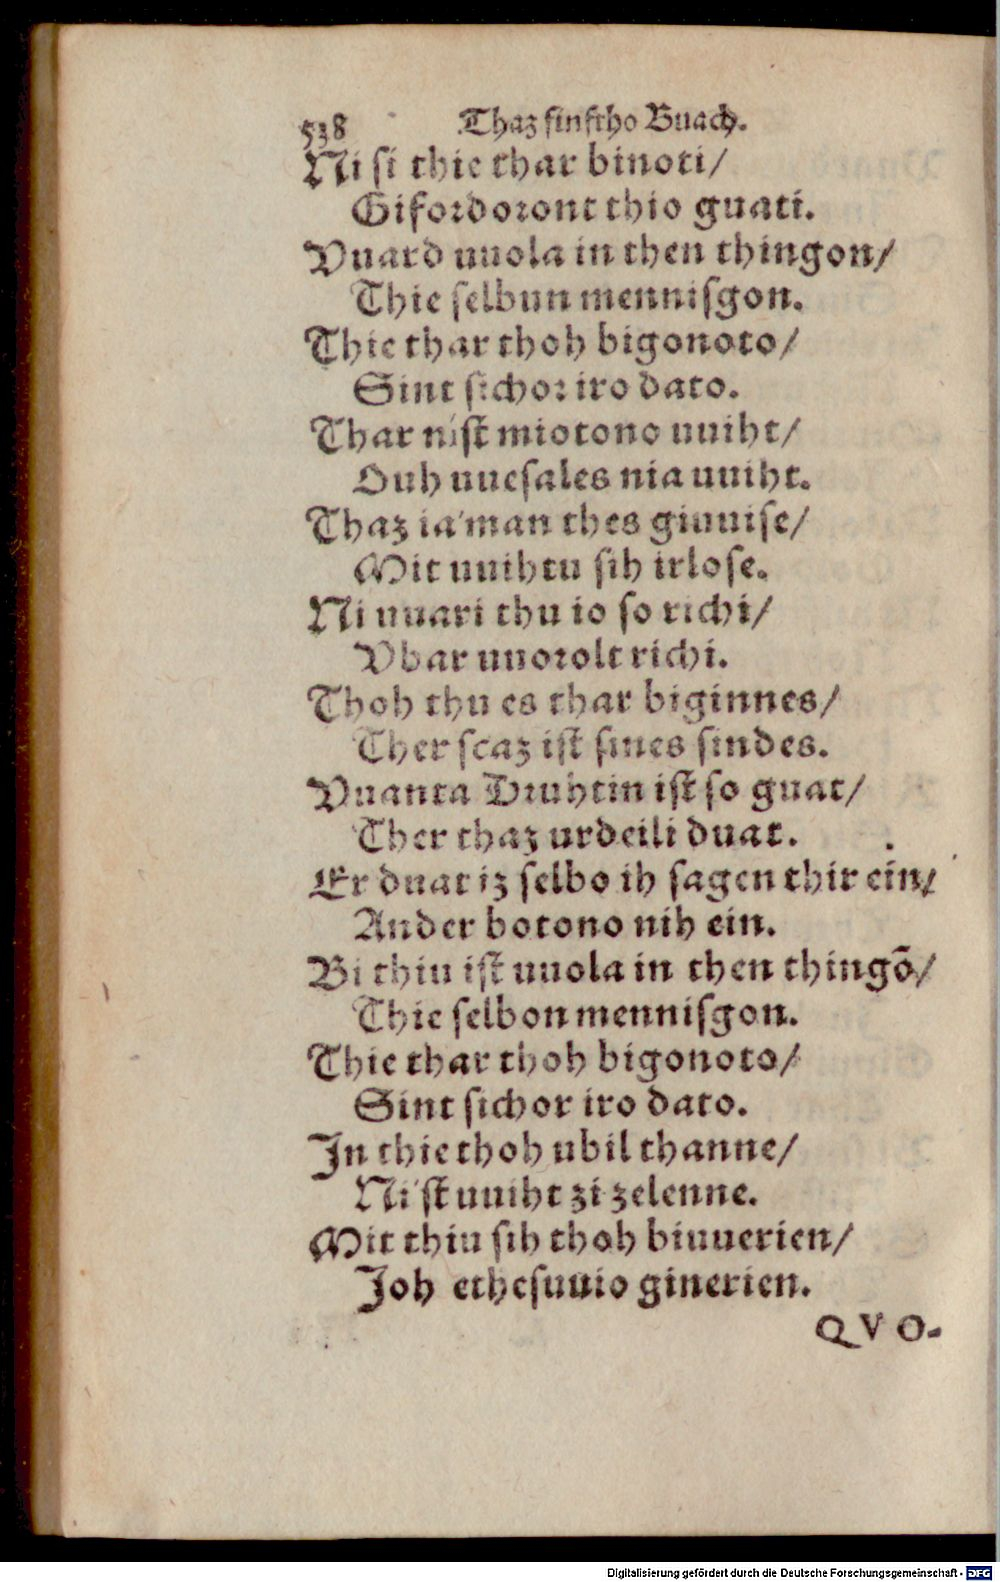 538 Thaz finftho Buach.
Ni si thie thar binoti/
Gifordoront thio guati.
Vuard uuola in then thingon/
Thie selbun mennisgon.
Thie thar thoh bigonoto/
Sint sichor iro dato.
Thar nist miotono uuiht/
Ouh uuesales nia uuiht.
Thaz ia'man thes giuuise/
Mit uuihtu sih irlose.
Ni uuari thu io so richi/
Vbar uuorolt richi.
Thoh thu es thar biginnes/
Ther scaz ist sines sindes.
Vuanta Druhtin ist so guat/
Ther thaz urdeili duat.
Er duat iz selbo ih sagen thir ein/
Ander botono nih ein.
Bi thiu ist uuola in then thingō/
Thie selbon mennisgon.
Thie thar thoh bigonoto/
Sint sichor iro dato.
In thie thoh ubil thanne/
Ni'st uuiht zi zelenne.
Mit thiu sih thoh biuuerien/
Ioh ethesuuio ginerien.
QVO-
Digitalisierung gefördert durch die Deutsche Forschungsgemeinschaft - DFG